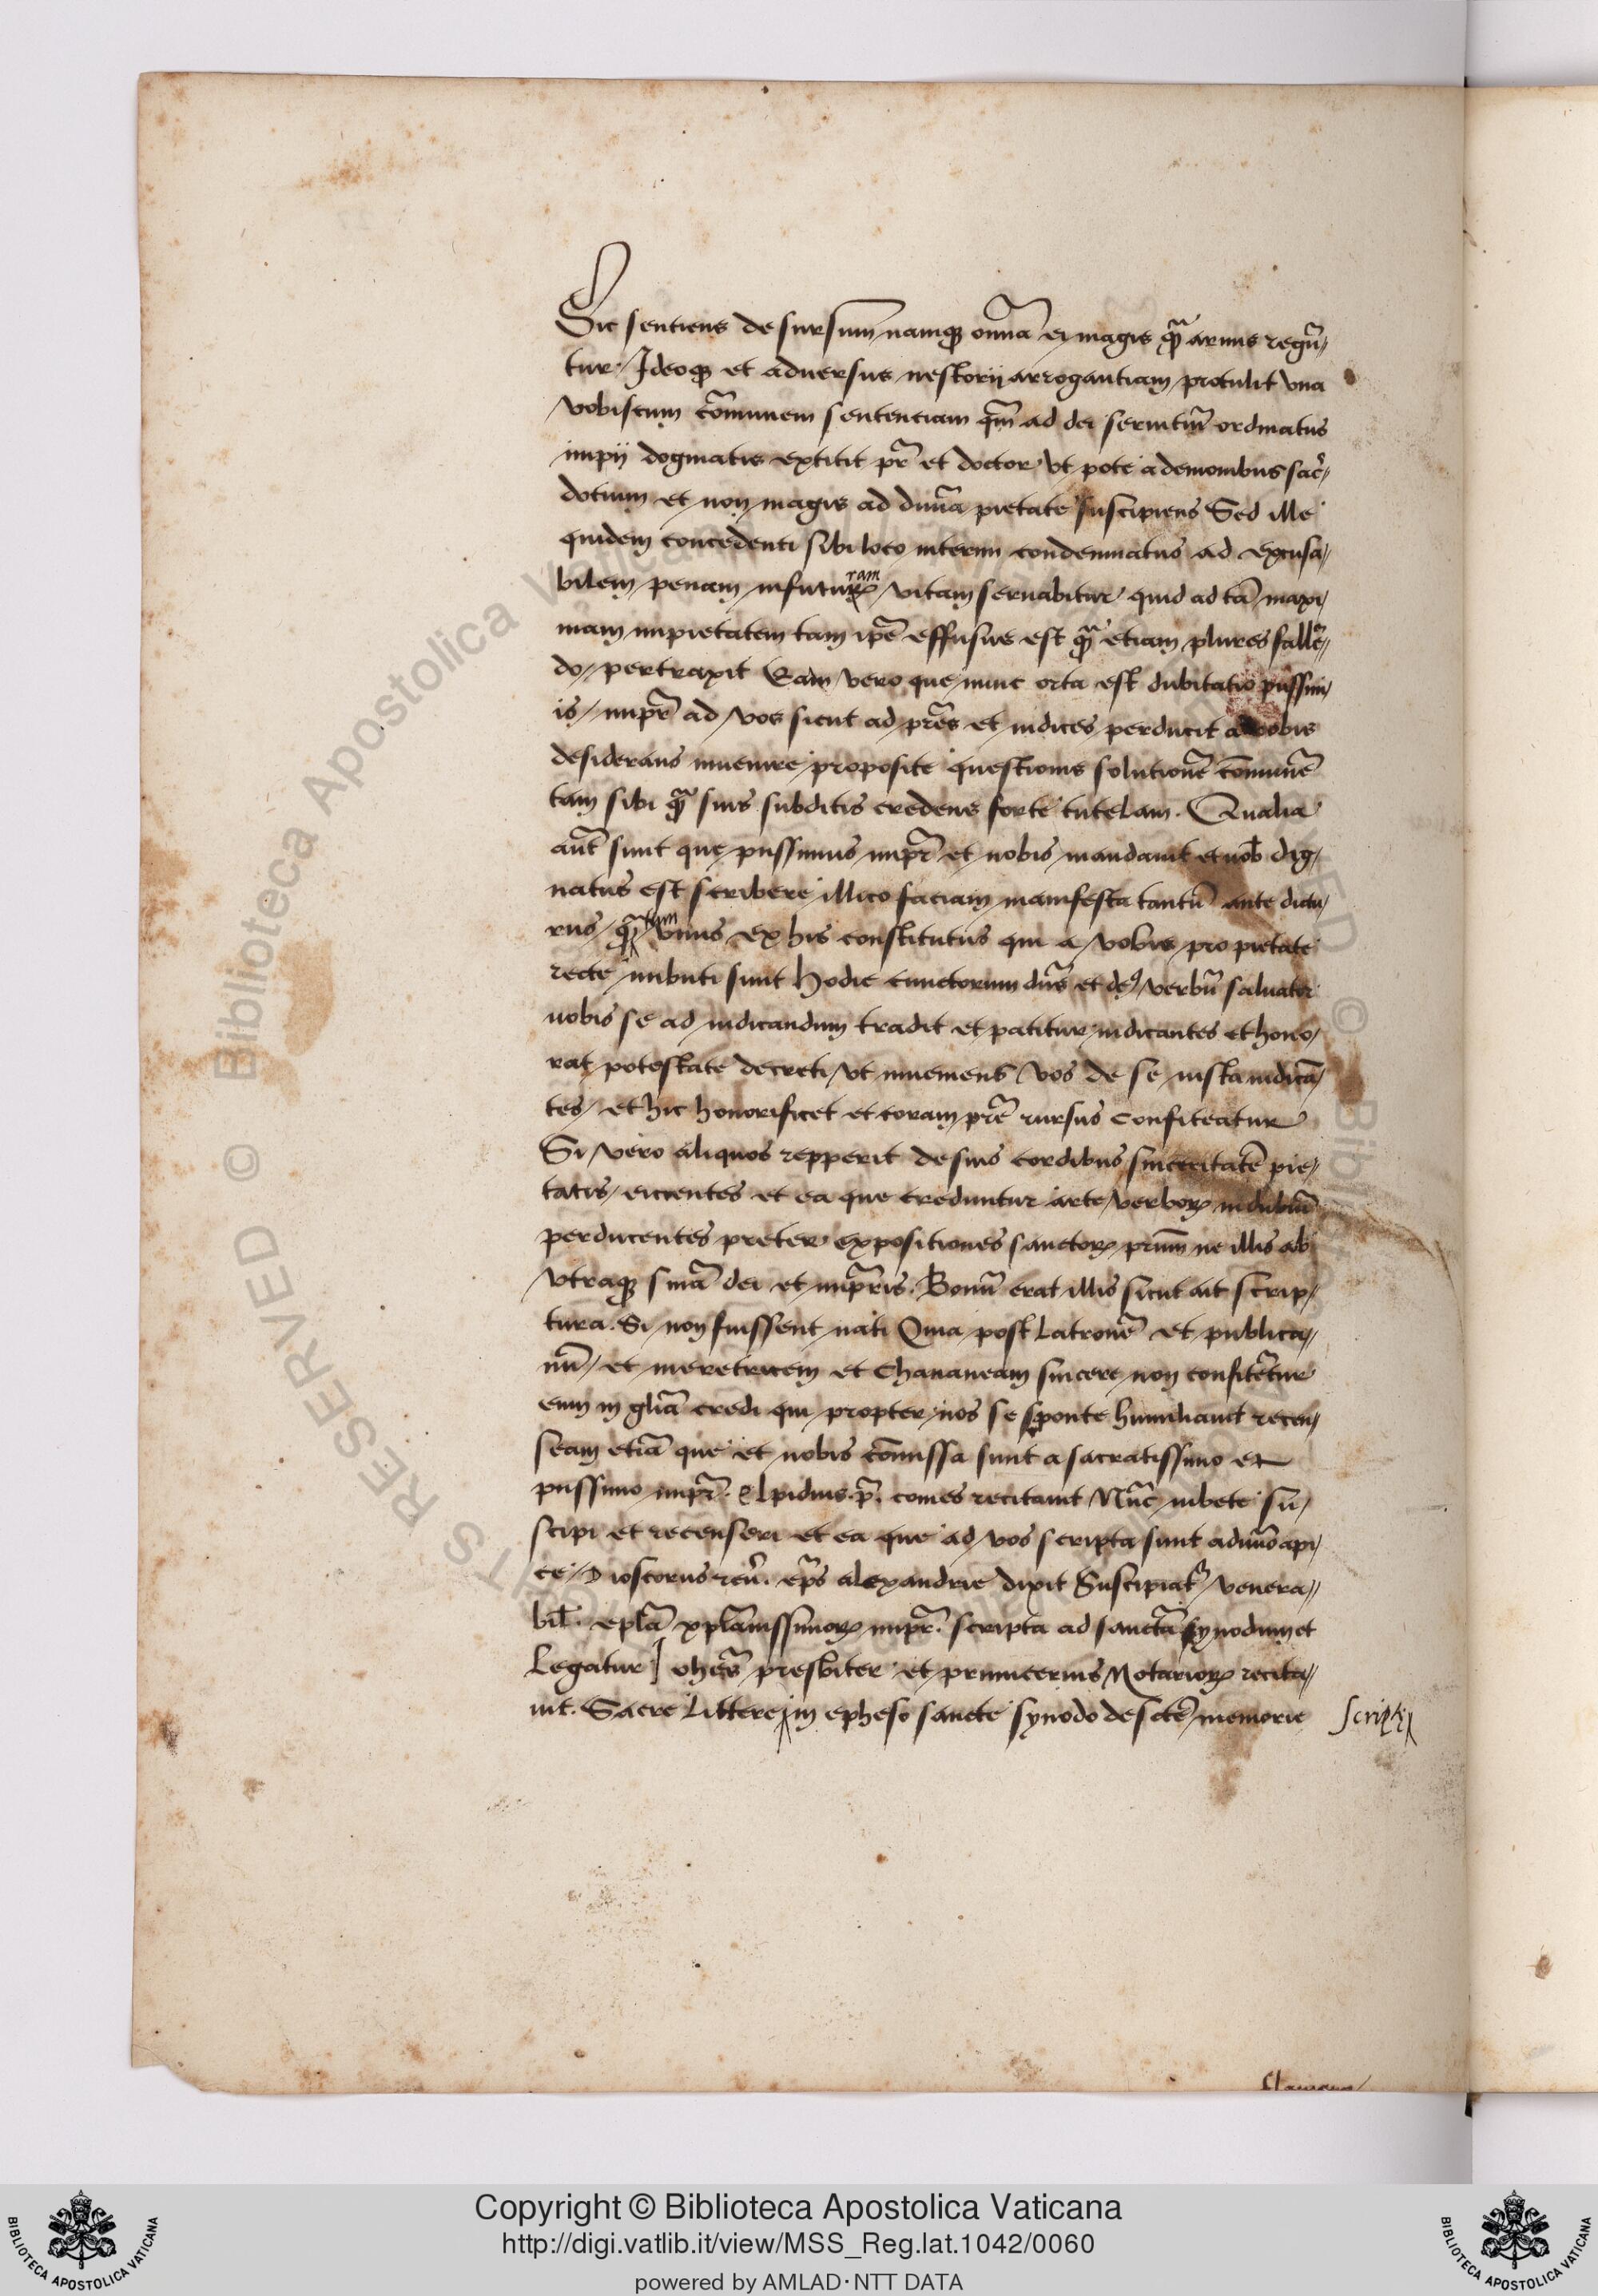 Sic sentiens de sursum namq oīna ei magis q̄ armis regū/
tur Ideoq et adversus nestorij arrogantiam protulit una
vobiscum cōmunem sententiam qm̄ ad dei servitiū ordinatus
impij dogmatis extitit pr̄ et doctor ut pote a demonibus sac̄/
dotium et non magis ad divīa pietate suscipiens Sed ille
quidem concedenti sibi loco interim condemnatus ad excusa/
bilem penam in futurā ram vitam servabitur quid ad tā maxi/
mam impietatem tam ip̄e effusus est q̄ etiam plures fallē/
do pertraxit Eam vero que nunc orta est dubitatio pijssim/
is impr̄ ad vos sicut ad pr̄es et iudices perducit a vobis
desiderans invenire proposite questionis solutionē cōmunē
tam sibi q̄ suis subditis credens forte tutelam. Qualia
aūt sunt que pijssimus impr̄ et nobis mandavit et vob̄ dig/
natus est scribere illico faciam manifesta tantū ante dictu/
rus q̄ tam unus ex his constitutus qui a vobis pro pietate
recte imbuti sunt hodie cunctorum dn̄s et de9 verbū salvator
vobis se ad iudicandum tradit et patitur iudicantes et hono/
rat potestate decreti ut inveniens vos de se iusta iudicā/
tes et hic honorificet et coram pr̄e rursus confiteatur
Si vero aliquos repperit de suis cordibus sinceritatē pie/
tatis eicientes et ea que creduntur arte verborꝝ in dubiū
perducentes preter expositiones sanctorꝝ prīm ne illis ab
utraq sn̄ia dei et impr̄is. Bonū erat illis sicut ait scrip/
tura. Si non fuissent nati Quia post latronē et publica/
nū et meretricem et Chananeam sincere non confitētur
eum in gl̄ia credi qui propter nos se sponte humiliavit recen/
seam etiā que et nobis cōmissa sunt a sacratissimo et
pijssimo impr̄. Elpidius.p̄. comes recitavit Nūc iubete su/
scipi et recenseri et ea que ad vos scripta sunt a divīo api/
ce Dioscorus rev̄. ep̄s alexandrie dixit Suscipiat᷑ venera/
bil̄. ep̄la xp̄ianissimorꝝ impr̄. scripta ad sanctā synodum et
Legatur Ioh̄es presbiter et primicerius Notariorꝝ recita/
vit. Sacre littere in epheso sancte synodo de sctē memorie
scripte